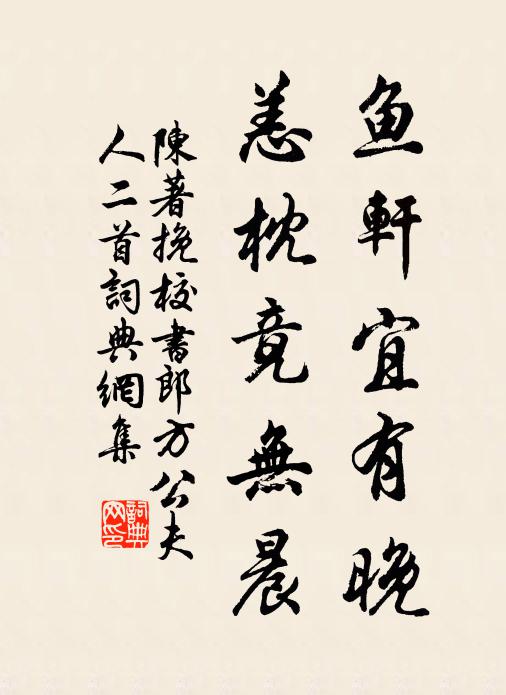 鱼軒宜有晚
恙枕竟無晨
陳著挽校書郎方公夫
人二首詞典網集
詞典
网印